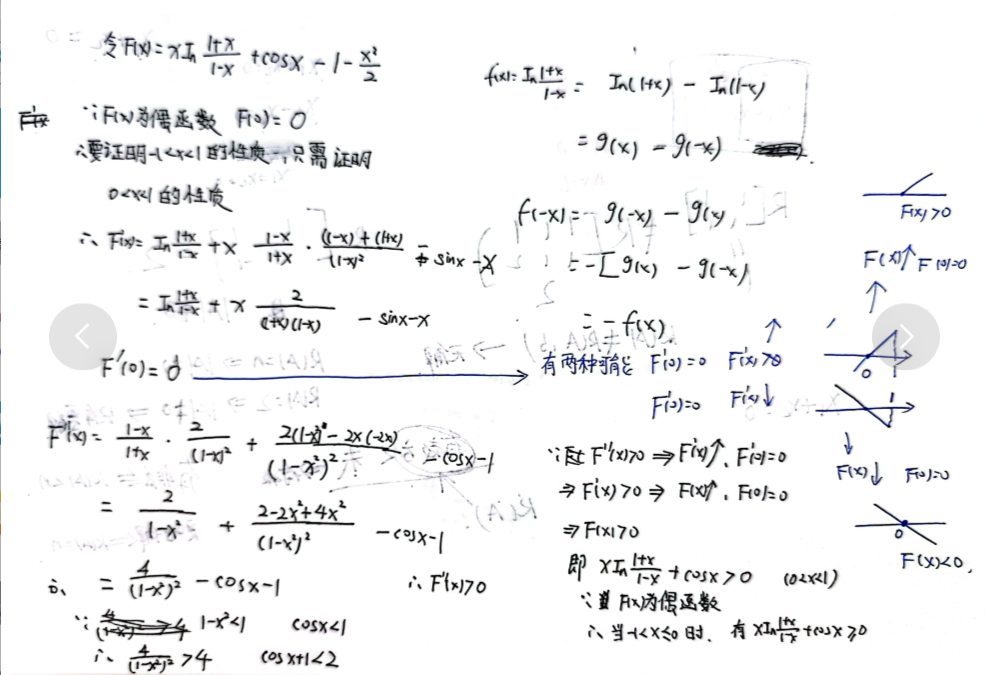 令F(x)=xln (1+x)/(1-x) +cosx-1-x²/2
∵F(x)为偶函数 F(0)=0
∴要证明-1<x<1的性质,只需证明
0<x<1的性质
∴F'(x)=ln (1+x)/(1-x) +x (1-x)/(1+x) · ((1-x)+(1+x))/(1-x)² - sinx-x
=ln (1+x)/(1-x) + x 2/((1+x)(1-x)) -sinx-x
F'(0)=0 → 有两种可能 F'(0)=0 F'(x)>0
F'(0)=0 F'(x)↓
F''(x)= (1-x)/(1+x) · 2/(1-x)² + (2(1-x²)-2x(-2x))/(1-x²)² -cosx-1
= 2/(1-x²) + (2-2x²+4x²)/(1-x²)² -cosx-1
∴ = 4/(1-x²)² -cosx-1 ∴F''(x)>0
∵ 1-x²<1 cosx<1
∴ 4/(1-x²)² >4 cosx+1<2
f(x)=ln (1+x)/(1-x) = ln(1+x) - ln(1-x)
=g(x)-g(-x)
f(-x)= g(-x)-g(x)
=-[g(x)-g(-x)
=-f(x)
F''(x)>0⇒F'(x)↑, F'(0)=0
⇒F'(x)>0⇒F(x)↑, F(0)=0
⇒F(x)>0
即 xln (1+x)/(1-x) +cosx>0 (0<x<1)
∵F(x)为偶函数
∴当-1<x≤0时, 有xln (1+x)/(1-x) +cosx≥0
F(x)>0
F(x)↑ F(0)=0
0
F(x)↓ F(0)=0
0
F(x)<0,